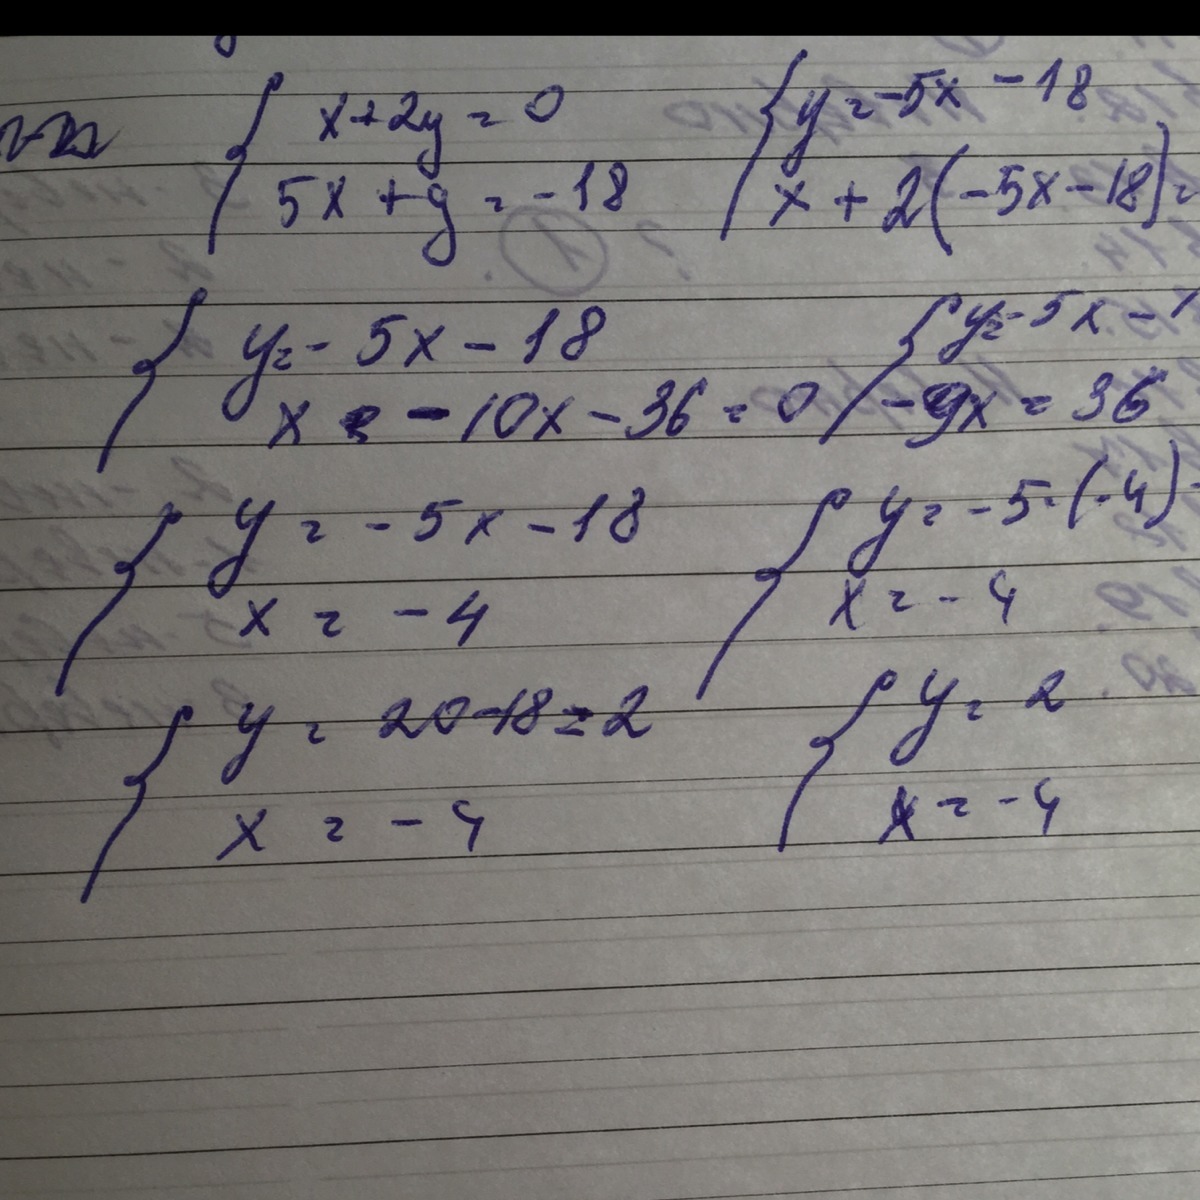 x+2y=0
5x+y=-18
y=-5x-18
x+2(-5x-18)=
y=-5x-18
x-10x-36=0
y=-5x-1
-9x=36
y=-5x-18
x=-4
y=-5·(-4)-
x=-4
y=20-18=2
x=-4
y=2
x=-4